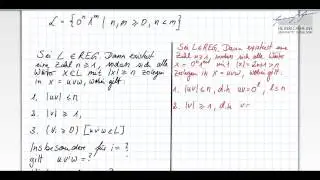 L = {0ⁿ1ᵐ | n, m ≥ 0, n < m}
Sei L ∈ REG. Dann existiert
eine Zahl n ≥ 1, sodass sich alle
Wörter x ∈ L mit |x| ≥ n zerlegen
in x = uvw, wobei gilt:
1. |uv| ≤ n
2. |v| ≥ 1
3. (∀i ≥ 0) [uvⁱw ∈ L]
Insbesondere für i = ?
gilt uv?w = ?
Sei L ∈ REG. Dann existiert eine
Zahl n ≥ 1, sodass sich alle Wörter
zerlegen
in x = uvw, wobei gilt:
1. |uv| ≤ n, d.h.
2. |v| ≥ 1, d.h.